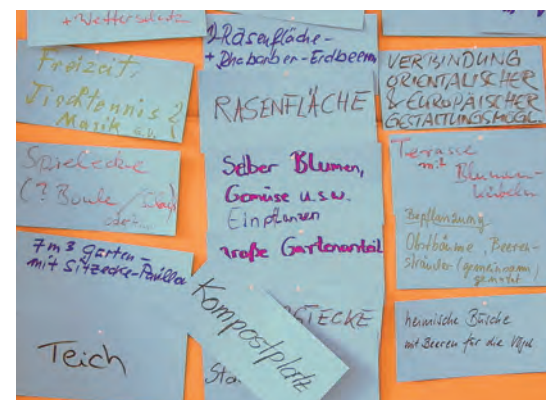 + Wetterschutz
Freizeit,
Tischtennis 2
Musik
Spielecke
(? Boule
oder...
7 m² garten -
mit Sitzecke-Pavillon
Teich
Räsenfläche -
+ Rhabarber - Erdbeern
RASENFLÄCHE
Selber Blumen,
Gemüse u.s.w.
Einpflanzen
große Gartenanteil
Kompostplatz
STECKE
Sta
VERBINDUNG
ORIENTALISCHER
& EUROPÄISCHER
GESTALTUNGSMÖGL.
Terrasse
mit Blumen-
kübeln
Bepflanzung
Obstbäume, Beeren-
sträucher (gemeinsam
genutzt)
heimische Büsche
mit Beeren für die Vögel